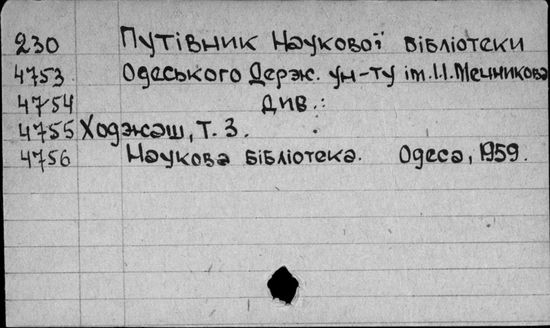 230 Путівник Наукової бібліотеки
4753 Одеського Держ. ун-ту ім.І.І.Мечникова
4754 див.:
4755 Ходжаш, Т. З.
4756 Наукова бібліотека. Одеса, 1959.